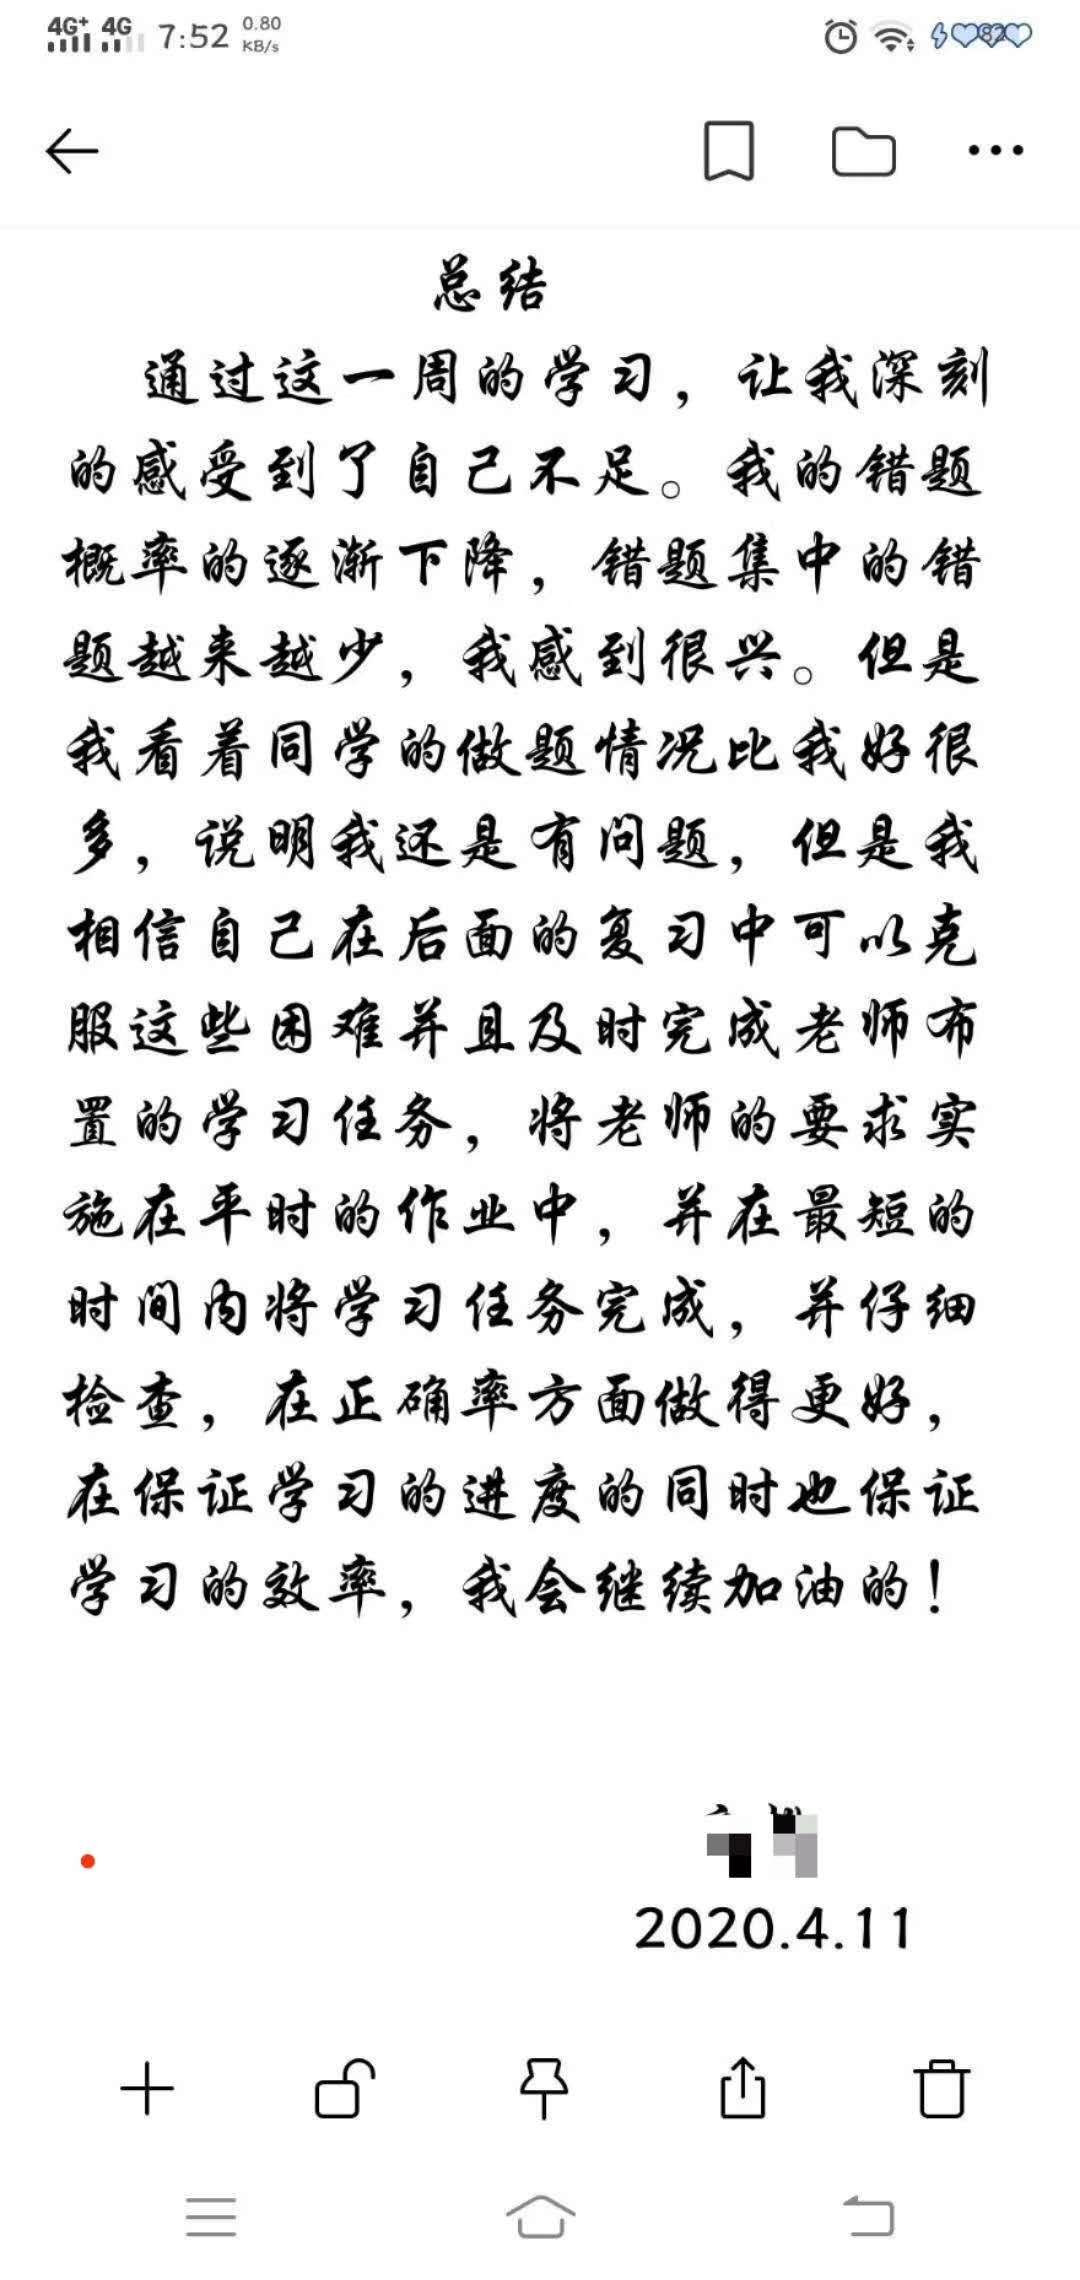 4G+ 4G 7:52 0.80 KB/s 82
总结
通过这一周的学习，让我深刻
的感受到了自己不足。我的错题
概率的逐渐下降，错题集中的错
题越来越少，我感到很兴。但是
我看着同学的做题情况比我好很
多，说明我还是有问题，但是我
相信自己在后面的复习中可以克
服这些困难并且及时完成老师布
置的学习任务，将老师的要求实
施在平时的作业中，并在最短的
时间内将学习任务完成，并仔细
检查，在正确率方面做得更好，
在保证学习的进度的同时也保证
学习的效率，我会继续加油的！
2020.4.11